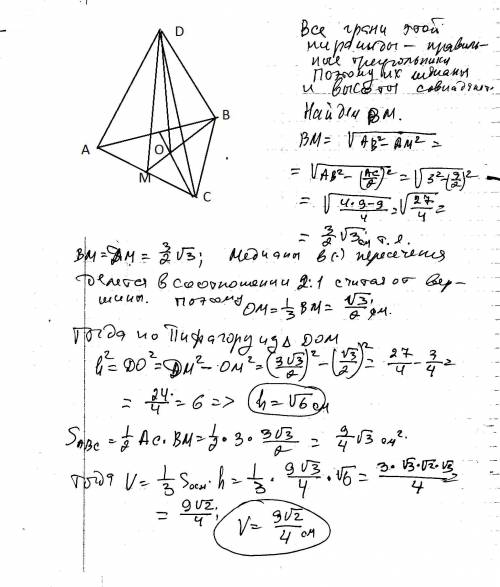 D
A
B
O
M
C
Все грани этой
пирамиды – правиль-
ные треугольники
Поэтому их медианы
и высоты совпадают.
Найдем BM.
BM = √AB² - AM² =
= √AB² - (AC/2)² = √3² - (3/2)² =
= √(4·9-9)/4 = √27/4 =
= 3/2 √3 см т.е.
BM = DM = 3/2 √3; Медианы в (·) пересечения
делятся в соотношении 2:1 считая от вер-
шины. Поэтому OM = 1/3 BM = √3/2 см.
Тогда по Пифагору из Δ DOM
h² = DO² = DM² - OM² = (3√3/2)² - (√3/2)² = 27/4 - 3/4 =
= 24/4 = 6 => h = √6 см
S_ABC = 1/2 AC · BM = 1/2 · 3 · 3√3/2 = 9/4 √3 см².
Тогда V = 1/3 Sосн · h = 1/3 · 9√3/4 · √6 = 3·√3·√2·√3/4 =
= 9√2/4; V = 9√2/4 см